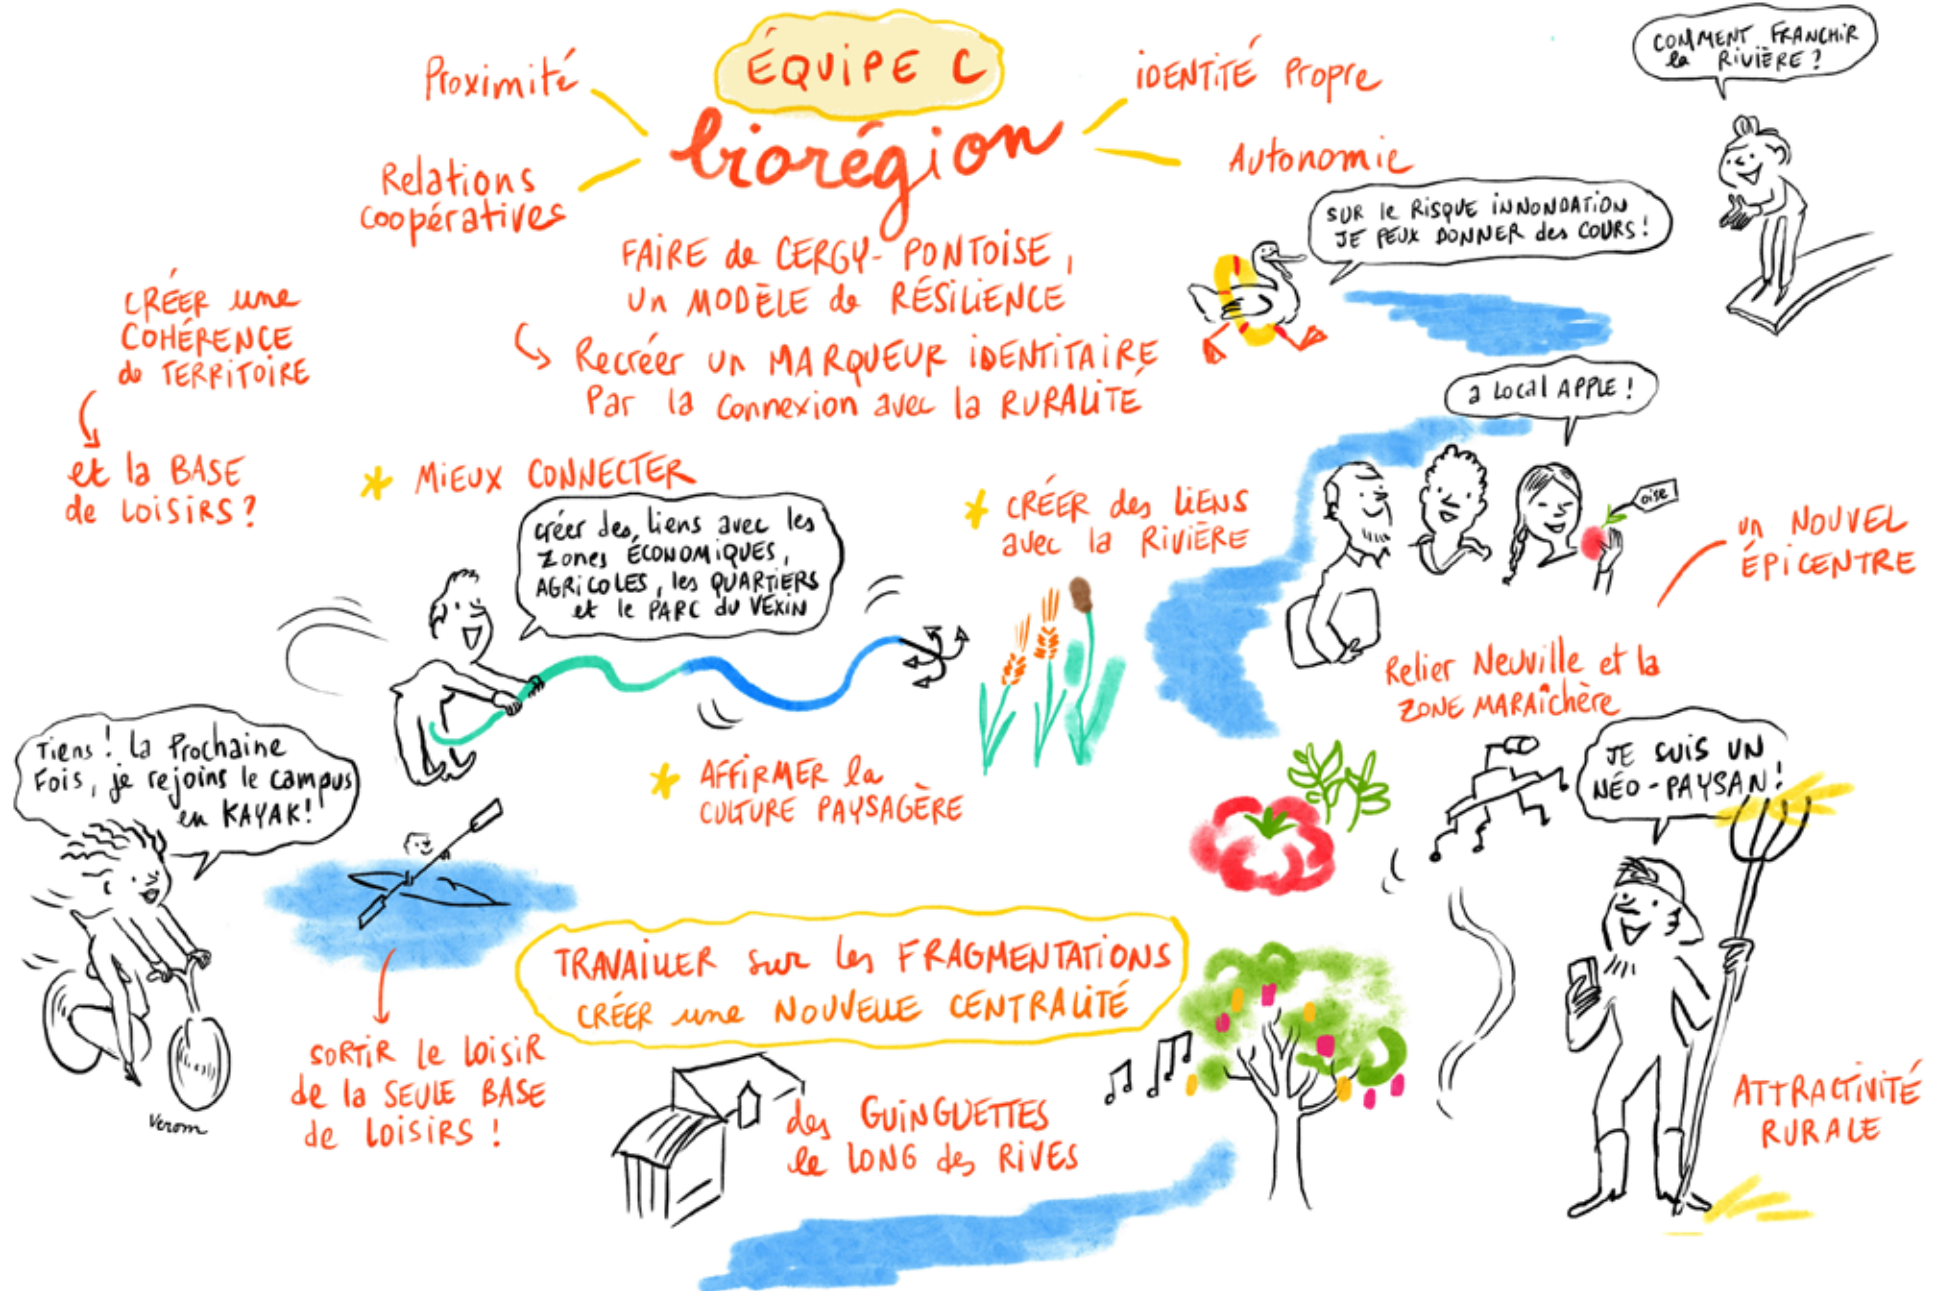 ÉQUIPE C
biorégion
Proximité
Relations
coopératives
iDENTITÉ Propre
Autonomie
COMMENT FRANCHIR
la RIVIÈRE ?
SUR le RISQUE iNNONDATION
JE PEUX DONNER des COURS !
FAIRE de CERGY-PONTOISE,
un MODÈLE de RÉSILIENCE
Recréer un MARQUEUR iDENTITAIRE
Par la connexion avec la RURALITÉ
CRÉER une
COHÉRENCE
de TERRITOIRE
et la BASE
de LOISIRS ?
* MIEUX CONNECTER
créer des liens avec les
zones ÉCONOMIQUES,
AGRICOLES, les QUARTIERS
et le PARC du VEXIN
* CRÉER des LIENS
avec la RIVIÈRE
a Local APPLE !
oise
un NOUVEL
ÉPICENTRE
Relier Neuville et la
ZONE MARAÎCHÈRE
Tiens ! la Prochaine
Fois, je rejoins le campus
en KAYAK !
* AFFIRMER la
CULTURE PAYSAGÈRE
JE SUIS UN
NÉO-PAYSAN !
TRAVAILLER sur les FRAGMENTATIONS
CRÉER une NOUVELLE CENTRALITÉ
SORTIR le LOISIR
de la SEULE BASE
de LOISIRS !
des GUINGUETTES
le LONG des RIVES
ATTRACTIVITÉ
RURALE
Verom